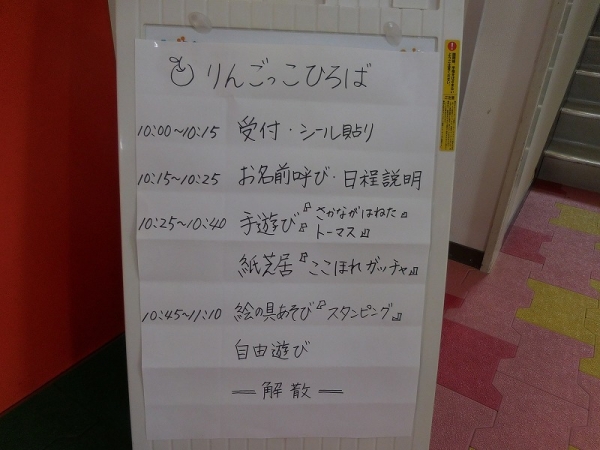 りんごっこひろば
10:00〜10:15 受付・シール貼り
10:15〜10:25 お名前呼び・日程説明
10:25〜10:40 手遊び『さかながはねた』
『トーマス』
紙芝居『ここほれガッチャ』
10:45〜11:10 絵の具あそび『スタンピング』
自由遊び
＝解散＝